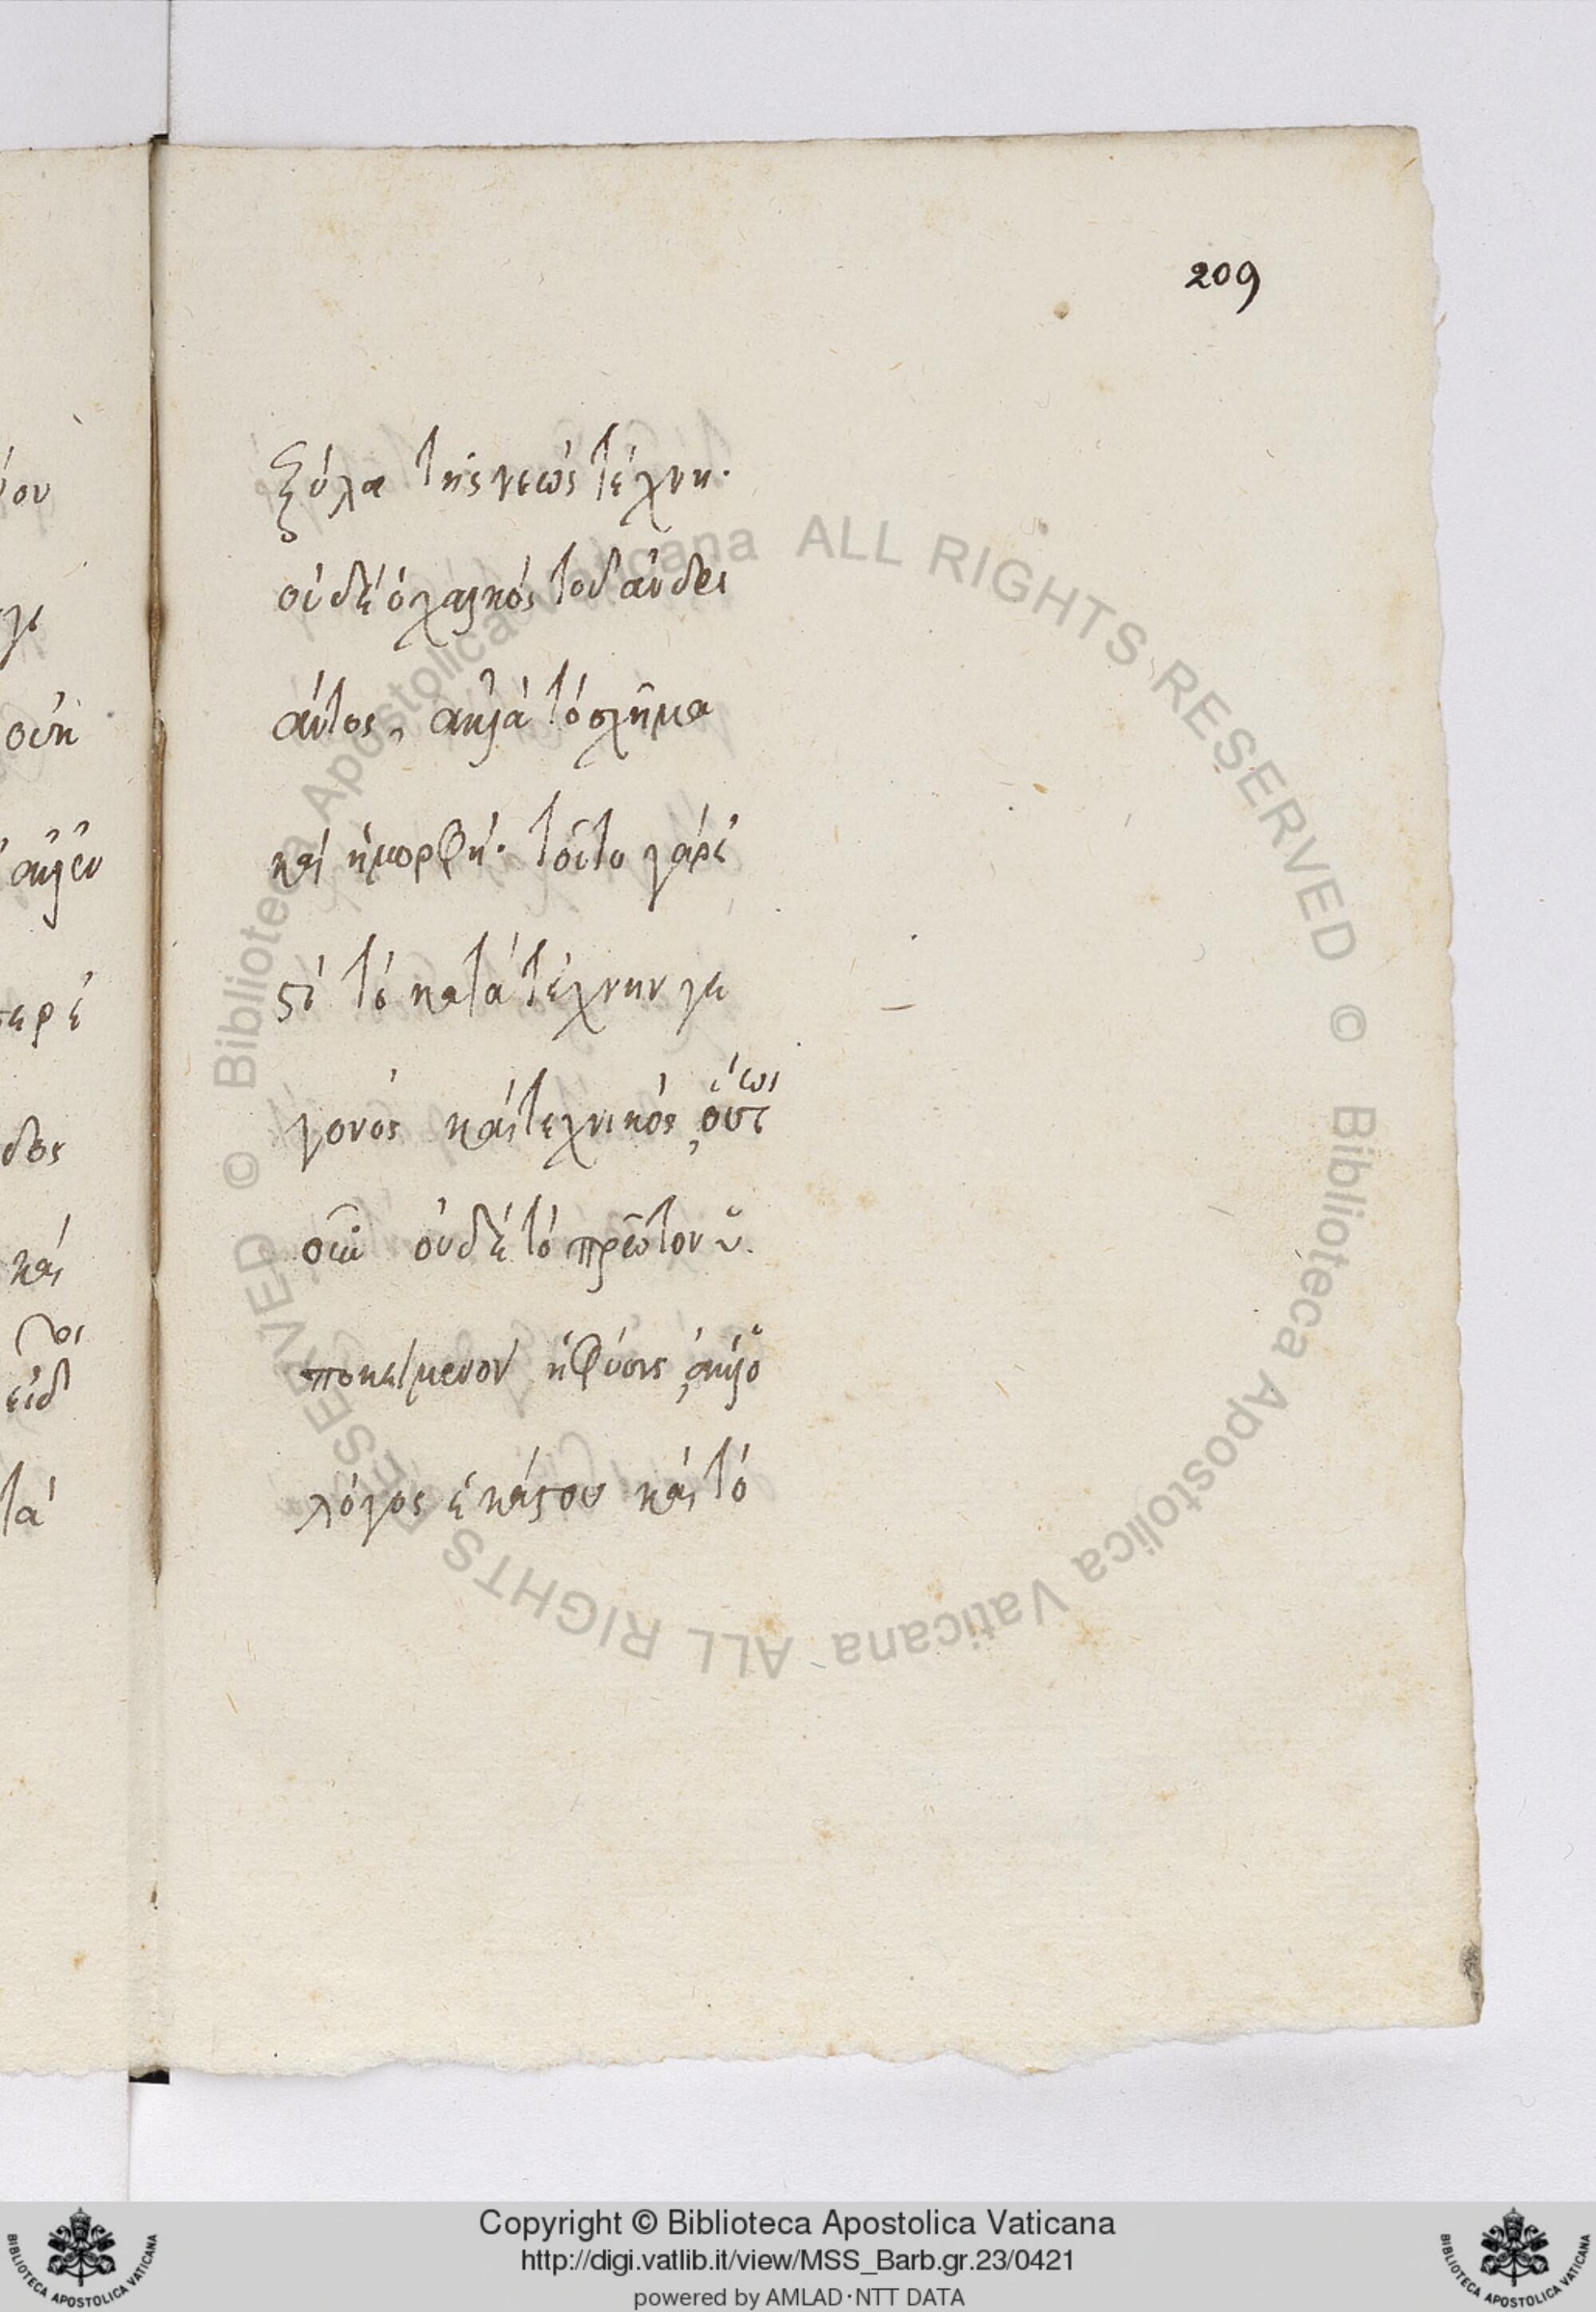 209
ξύλα τῆς νεὼς τέχνη·
οὐδὲ ὁ χαλκὸς τοῦ ἀνδρι
άντος, ἀλλὰ τὸ σχῆμα
καὶ ἡ μορφή· τοῦτο γάρ ἐ
στι τὸ κατὰ τέχνην γε
γονὸς καὶ τεχνικὸς, οὕτως
οὐδὲ τὸ πρῶτον ὑ
ποκείμενον ἡ φύσις, ἀλλ' ὁ
λόγος ἑκάστου καὶ τὸ
ιον
γε
οὐκ
ἀλλ' ἐν
περ ἐ
δος
καὶ
τά
© Biblioteca Apostolica Vaticana ALL RIGHTS RESERVED © Biblioteca Apostolica Vaticana ALL RIGHTS RESERVED
Copyright © Biblioteca Apostolica Vaticana
http://digi.vatlib.it/view/MSS_Barb.gr.23/0421
powered by AMLAD·NTT DATA
BIBLIOTECA APOSTOLICA VATICANA
BIBLIOTECA APOSTOLICA VATICANA